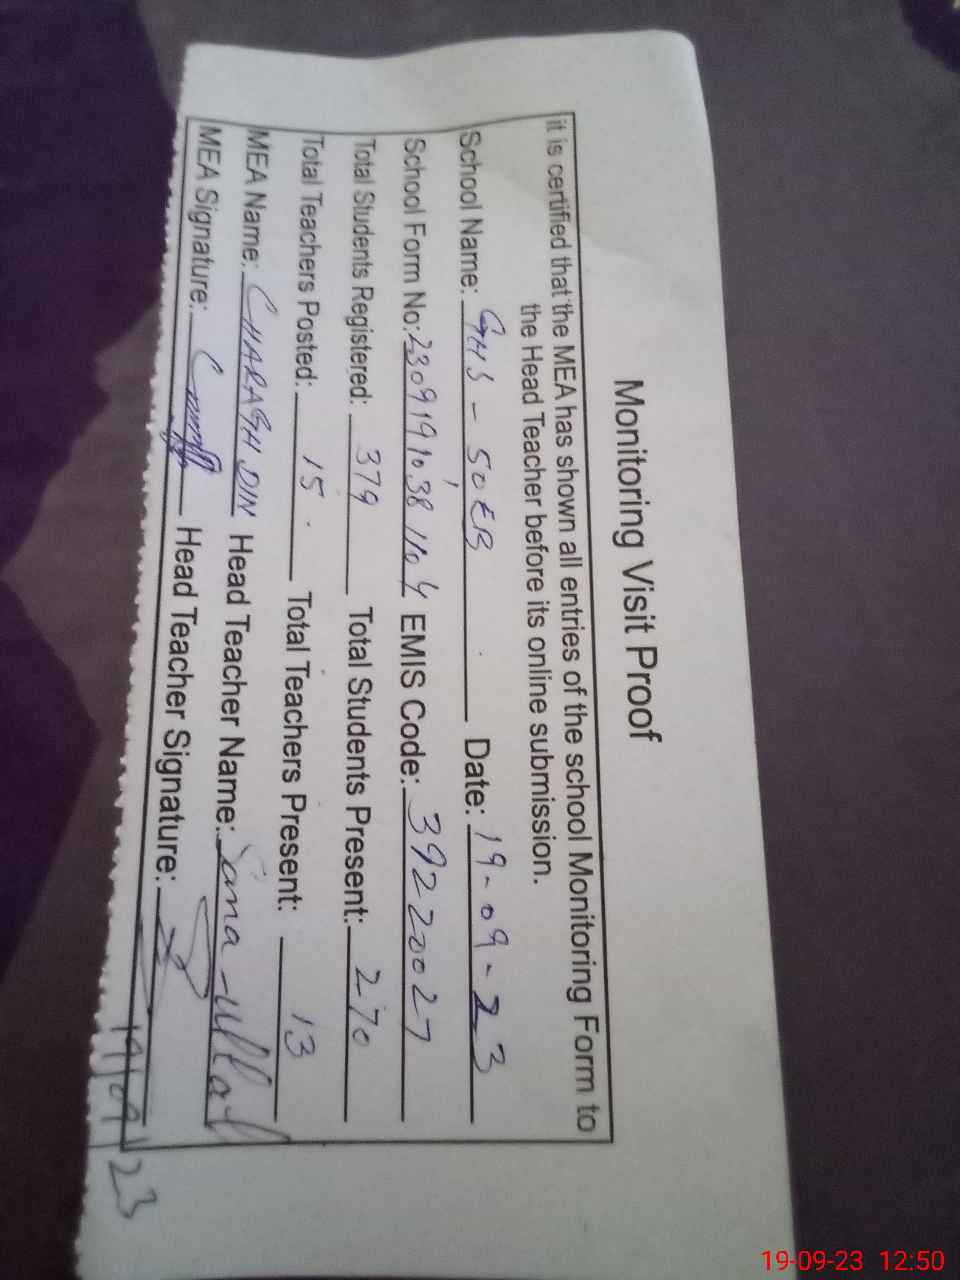 Monitoring Visit Proof
it is certified that the MEA has shown all entries of the school Monitoring Form to
the Head Teacher before its online submission.
School Name: GHS - SOEB Date: 19-09-23
School Form No: 23091910381104 EMIS Code: 39220027
Total Students Registered: 379 Total Students Present: 270
Total Teachers Posted: 15 Total Teachers Present: 13
MEA Name: CHARAGH DIN Head Teacher Name: Sana-ullah
MEA Signature: Head Teacher Signature:
19/09/23
19-09-23 12:50